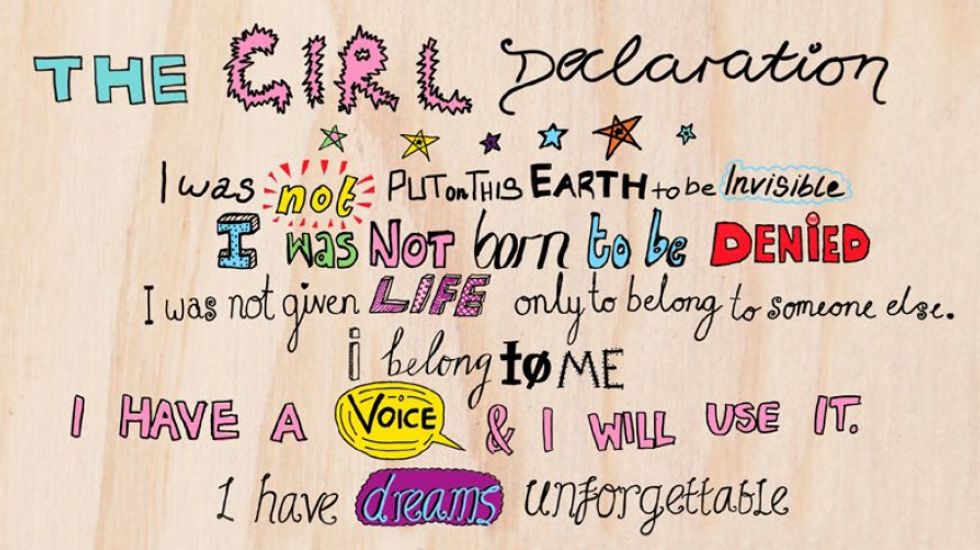 THE GIRL Declaration
I was not PUT on THIS EARTH to be Invisible
I was NOT born to be DENIED
I was not given LIFE only to belong to someone else.
i belong to ME
I HAVE A VOICE & I WILL USE IT.
I have dreams unforgettable